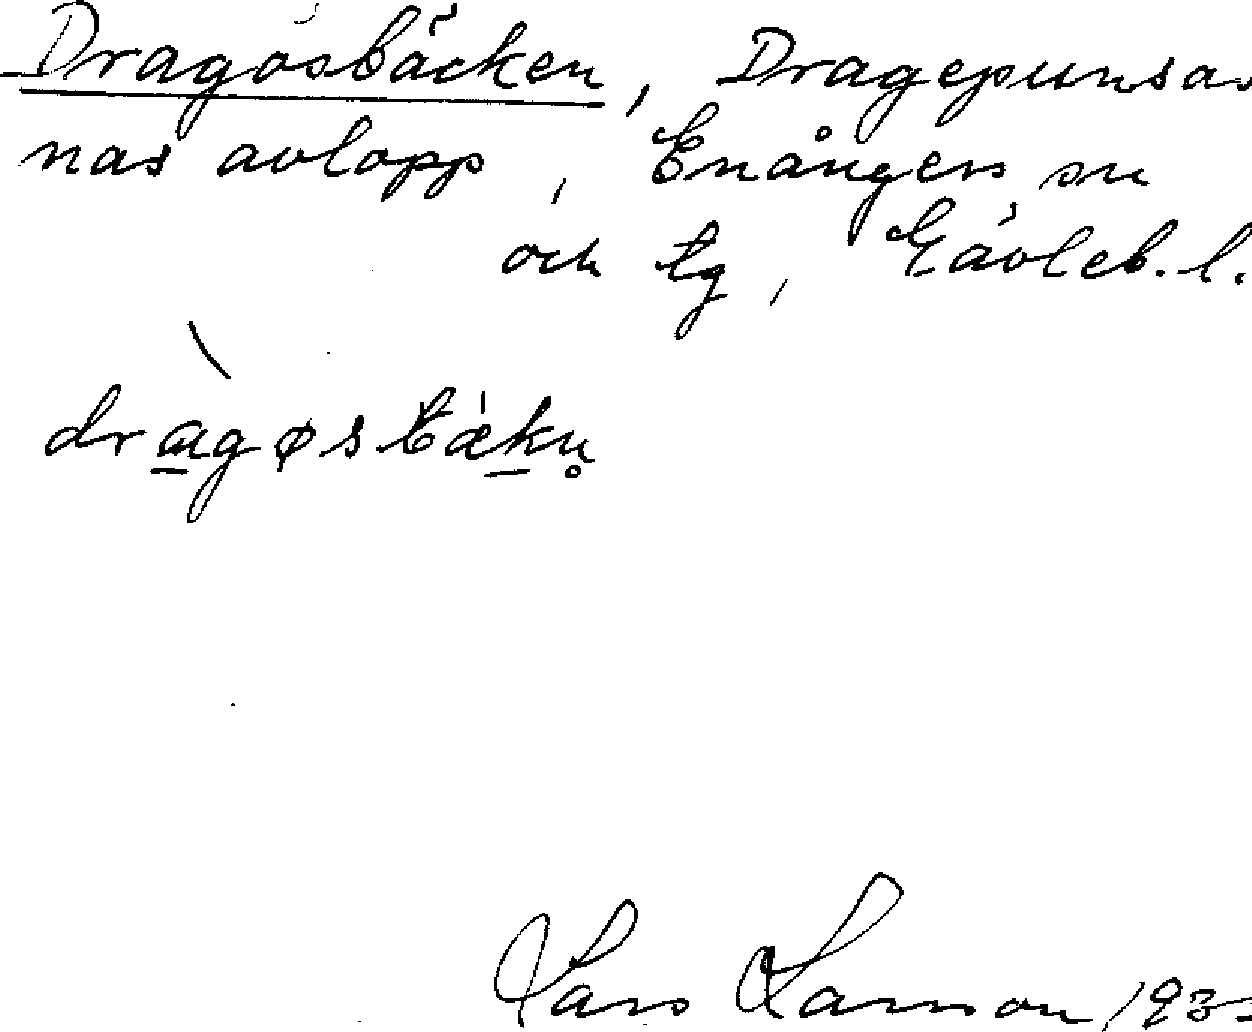 Dragösbäcken, Dragepunsar
nas avlopp, Enångers sn
och tg, Gävleb. l.
dragøsbækn̥
Lars Larsson 193